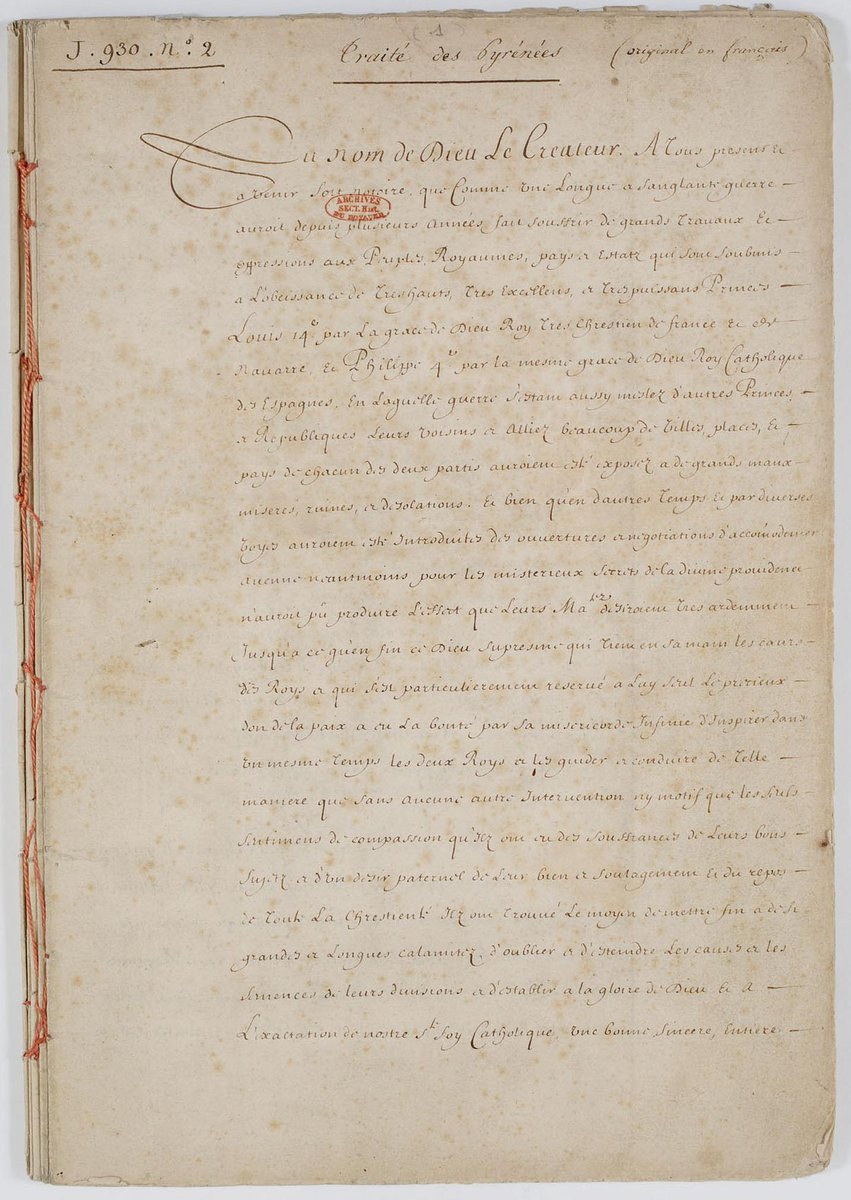 1
J. 930. N.º 2
Traité des Pyrénées
(original en français)
Au nom de Dieu Le Createur. A Tous presens Et
a venir soit notoire, que Comme Vne Longue & sanglante guerre
ARCHIVES
SECT. HIST.
DU ROYAUME
auroit depuis plusieurs Années fait souffrir de grands Travaux Et
oppressions aux Peuples, Royaumes, pays & Estatz qui sont soubmis
a L'obeissance de Treshauts, Tres Excellens, & Trespuissans Princes
Louis 14e par La grace de Dieu Roy Tres Chrestien de france Et de
Nauarre, Et Philippe 4e par la mesme grace de Dieu Roy Catholique
des Espagnes, En Laquelle guerre s'estant aussy meslez d'autres Princes,
& Republiques Leurs Voisins & Alliez beaucoup de Villes, places, Et
pays de chacun des deux partis auroient esté exposez a de grands maux
miseres, ruines, & desolations. Et bien qu'en d'autres Temps Et par diverses
Voyes auroient esté Introduites des ouvertures & negotiations d'accomodement
aucune neantmoins pour les misterieux secrets de la divine providence
n'auroit pû produire L'effect que Leurs Matez desiroient Tres ardemment
Jusqu'a ce qu'en fin ce Dieu supresme qui Tient en sa main les cœurs
des Roys & qui s'est particulierement reservé a Luy seul Le precieux
don de la paix a eu La bonté par sa misericorde Infinie d'Inspirer dans
Vn mesme Temps les deux Roys & les guider & conduire de Telle
maniere que sans aucune autre Intervention ny motif que les seuls
sentimens de compassion qu'Ilz ont eu des souffrances de Leurs bons
sujetz & d'Vn desir paternel de Leur bien & soulagement Et du repos
de Toute La Chrestienté Ilz ont Trouvé Le moyen de mettre fin a de si
grandes & Longues calamitez, d'oublier & d'esteindre Les causes & les
semences de leurs divisions & d'establir a la gloire de Dieu Et A
L'exaltation de nostre Ste foy Catholique, Vne bonne, sincere, Entiere